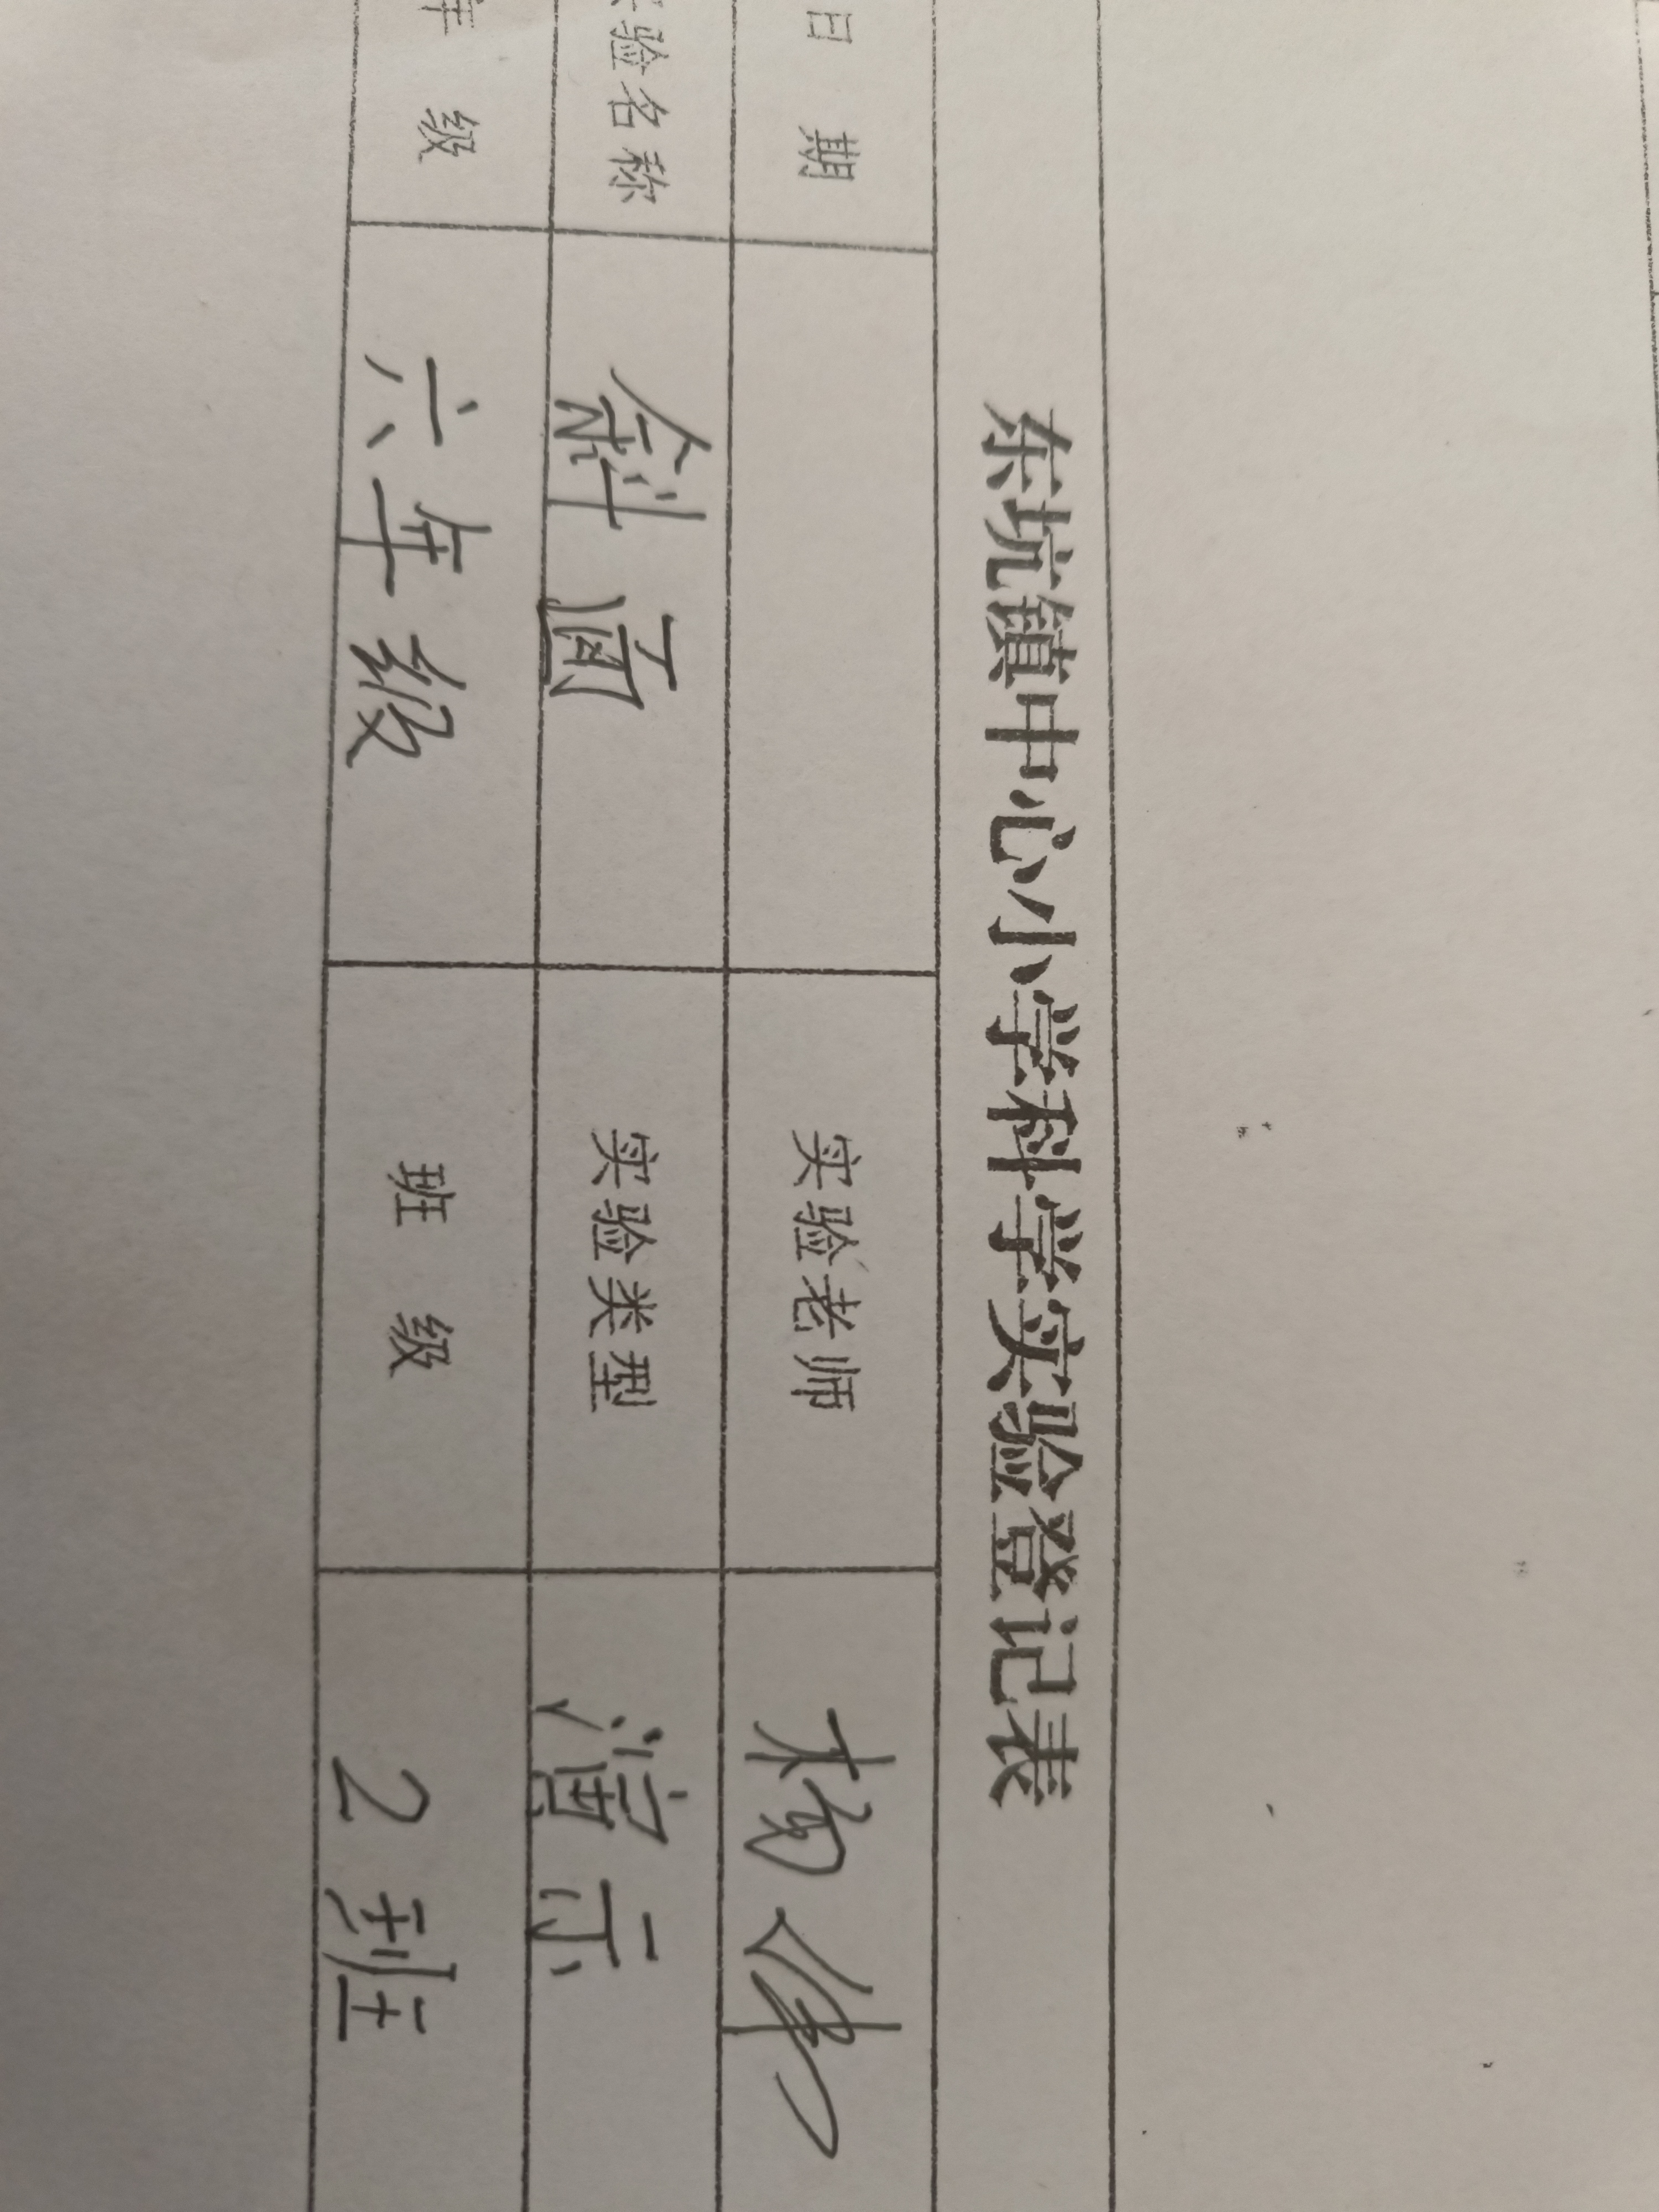 东坑镇中心小学科学实验登记表
日 期 实验老师 杨伟
实验名称 斜面 实验类型 演示
年 级 六年级 班 级 2班